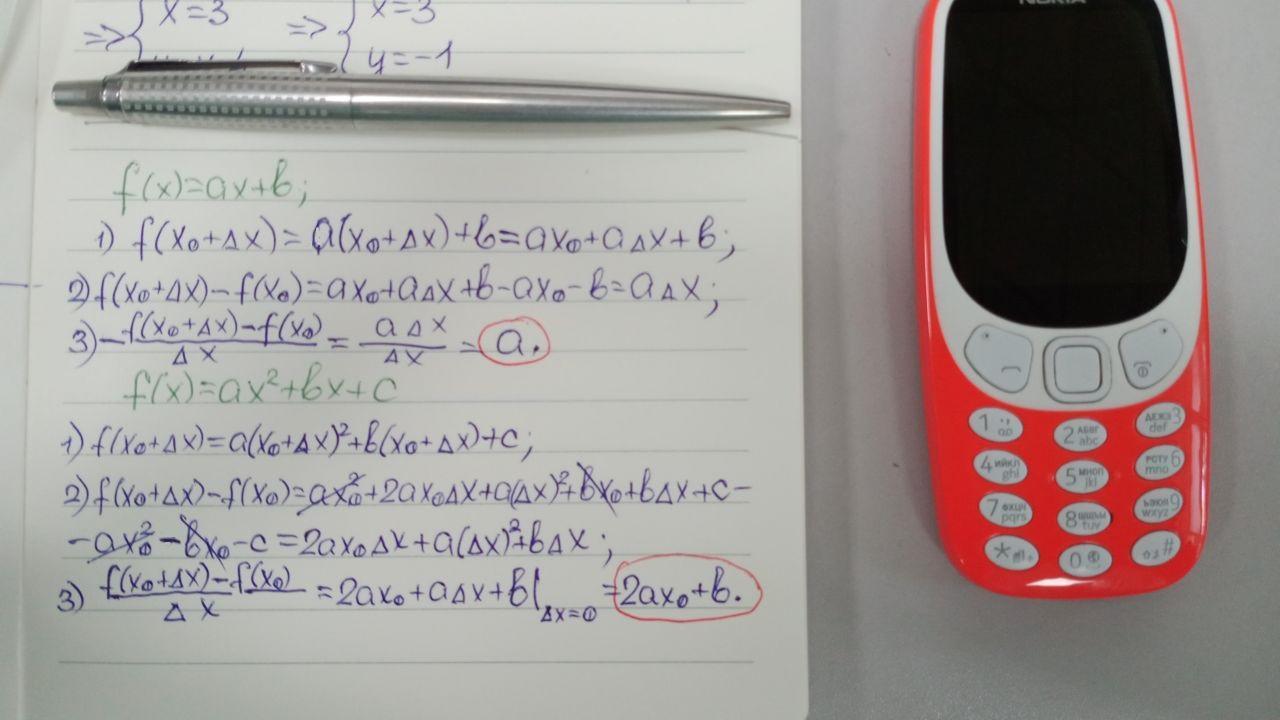 ⇒ { x=3 ⇒ { x=3
y=-1
f(x)=ax+b;
1) f(x₀+Δx)=a(x₀+Δx)+b=ax₀+aΔx+b;
2) f(x₀+Δx)-f(x₀)=ax₀+aΔx+b-ax₀-b=aΔx;
3) - (f(x₀+Δx)-f(x₀))/Δx = aΔx/Δx = a.
f(x)=ax²+bx+c
1) f(x₀+Δx)=a(x₀+Δx)²+b(x₀+Δx)+c;
2) f(x₀+Δx)-f(x₀)=ax₀²+2ax₀Δx+a(Δx)²+bx₀+bΔx+c-
-ax₀²-bx₀-c=2ax₀Δx+a(Δx)²+bΔx;
3) (f(x₀+Δx)-f(x₀))/Δx = 2ax₀+aΔx+b|Δx=0 = 2ax₀+b.
NOKIA
1
2 АБВГ abc
ДЕЖЗ 3 def
4 ИЙКЛ ghi
5 МНОП jkl
РСТУ 6 mno
7 ФХЦЧ pqrs
8 ШЩЪЫ tuv
ЬЭЮЯ 9 wxyz
*
0
#